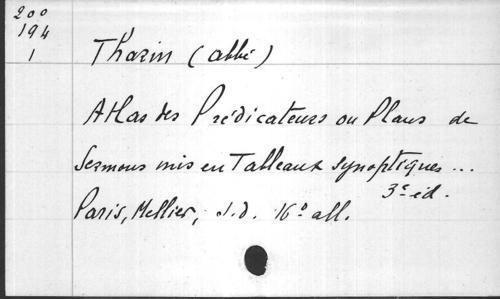 200
194
1
Tharin (abbé)
Atlas des Prédicateurs ou Plans de
Sermons mis en Tableaux synoptiques...
3e éd.
Paris, Mellier, s.d. 16° all.